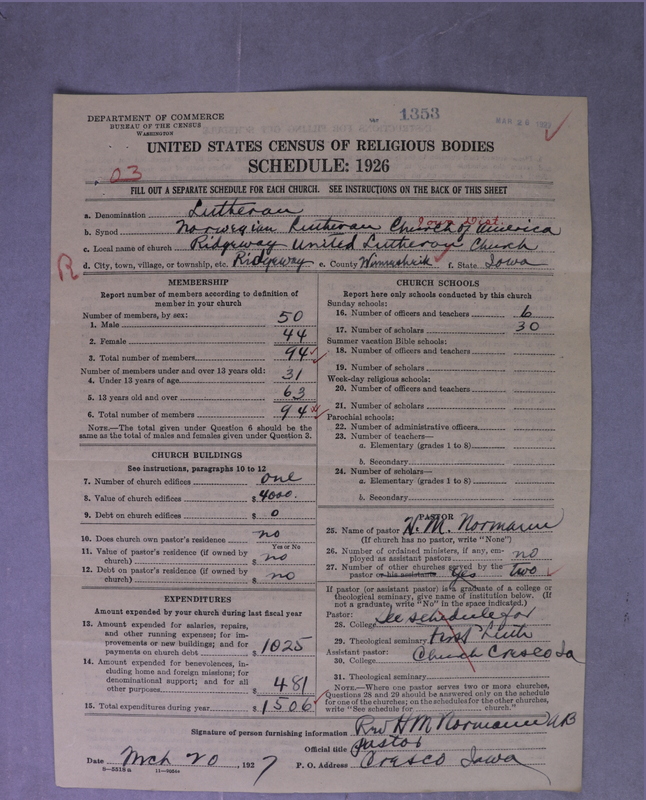 DEPARTMENT OF COMMERCE
BUREAU OF THE CENSUS
WASHINGTON
1353
MAR 26 1927
UNITED STATES CENSUS OF RELIGIOUS BODIES
SCHEDULE: 1926
03
FILL OUT A SEPARATE SCHEDULE FOR EACH CHURCH. SEE INSTRUCTIONS ON THE BACK OF THIS SHEET
a. Denomination Lutheran
Iowa Dist.
b. Synod Norwegian Lutheran Church of America
c. Local name of church Ridgeway United Lutheran Church
R
d. City, town, village, or township, etc. Ridgeway e. County Winneshiek f. State Iowa
MEMBERSHIP
Report number of members according to definition of
member in your church
Number of members, by sex:
1. Male 50
2. Female 44
3. Total number of members 94
Number of members under and over 13 years old:
4. Under 13 years of age 31
5. 13 years old and over 63
6. Total number of members 94
NOTE.—The total given under Question 6 should be the
same as the total of males and females given under Question 3.
CHURCH BUILDINGS
See instructions, paragraphs 10 to 12
7. Number of church edifices one
8. Value of church edifices $ 4000.
9. Debt on church edifices $ 0
10. Does church own pastor's residence no
Yes or No
11. Value of pastor's residence (if owned by
church) $ no
12. Debt on pastor's residence (if owned by
church) $ no
EXPENDITURES
Amount expended by your church during last fiscal year
13. Amount expended for salaries, repairs,
and other running expenses; for im-
provements or new buildings; and for
payments on church debt $ 1025
14. Amount expended for benevolences, in-
cluding home and foreign missions; for
denominational support; and for all
other purposes $ 481
15. Total expenditures during year $ 1506
CHURCH SCHOOLS
Report here only schools conducted by this church
Sunday schools:
16. Number of officers and teachers 6
17. Number of scholars 30
Summer vacation Bible schools:
18. Number of officers and teachers
19. Number of scholars
Week-day religious schools:
20. Number of officers and teachers
21. Number of scholars
Parochial schools:
22. Number of administrative officers
23. Number of teachers—
a. Elementary (grades 1 to 8)
b. Secondary
24. Number of scholars—
a. Elementary (grades 1 to 8)
b. Secondary
PASTOR
25. Name of pastor H. M. Normann
(If church has no pastor, write "None")
26. Number of ordained ministers, if any, em-
ployed as assistant pastors no
27. Number of other churches served by the
pastor or his assistants Yes two
If pastor (or assistant pastor) is a graduate of a college or
theological seminary, give name of institution below. (If
not a graduate, write "No" in the space indicated.)
Pastor:
28. College See schedule for
29. Theological seminary First Luth
Assistant pastor:
30. College Church Cresco Ia
31. Theological seminary
NOTE.—Where one pastor serves two or more churches,
Questions 28 and 29 should be answered only on the schedule
for one of the churches; on the schedules for the other churches,
write "See schedule for church."
Signature of person furnishing information Rev H M Normann
Official title Pastor
Date Mch 20, 1927 P. O. Address Cresco Iowa
8—5518a